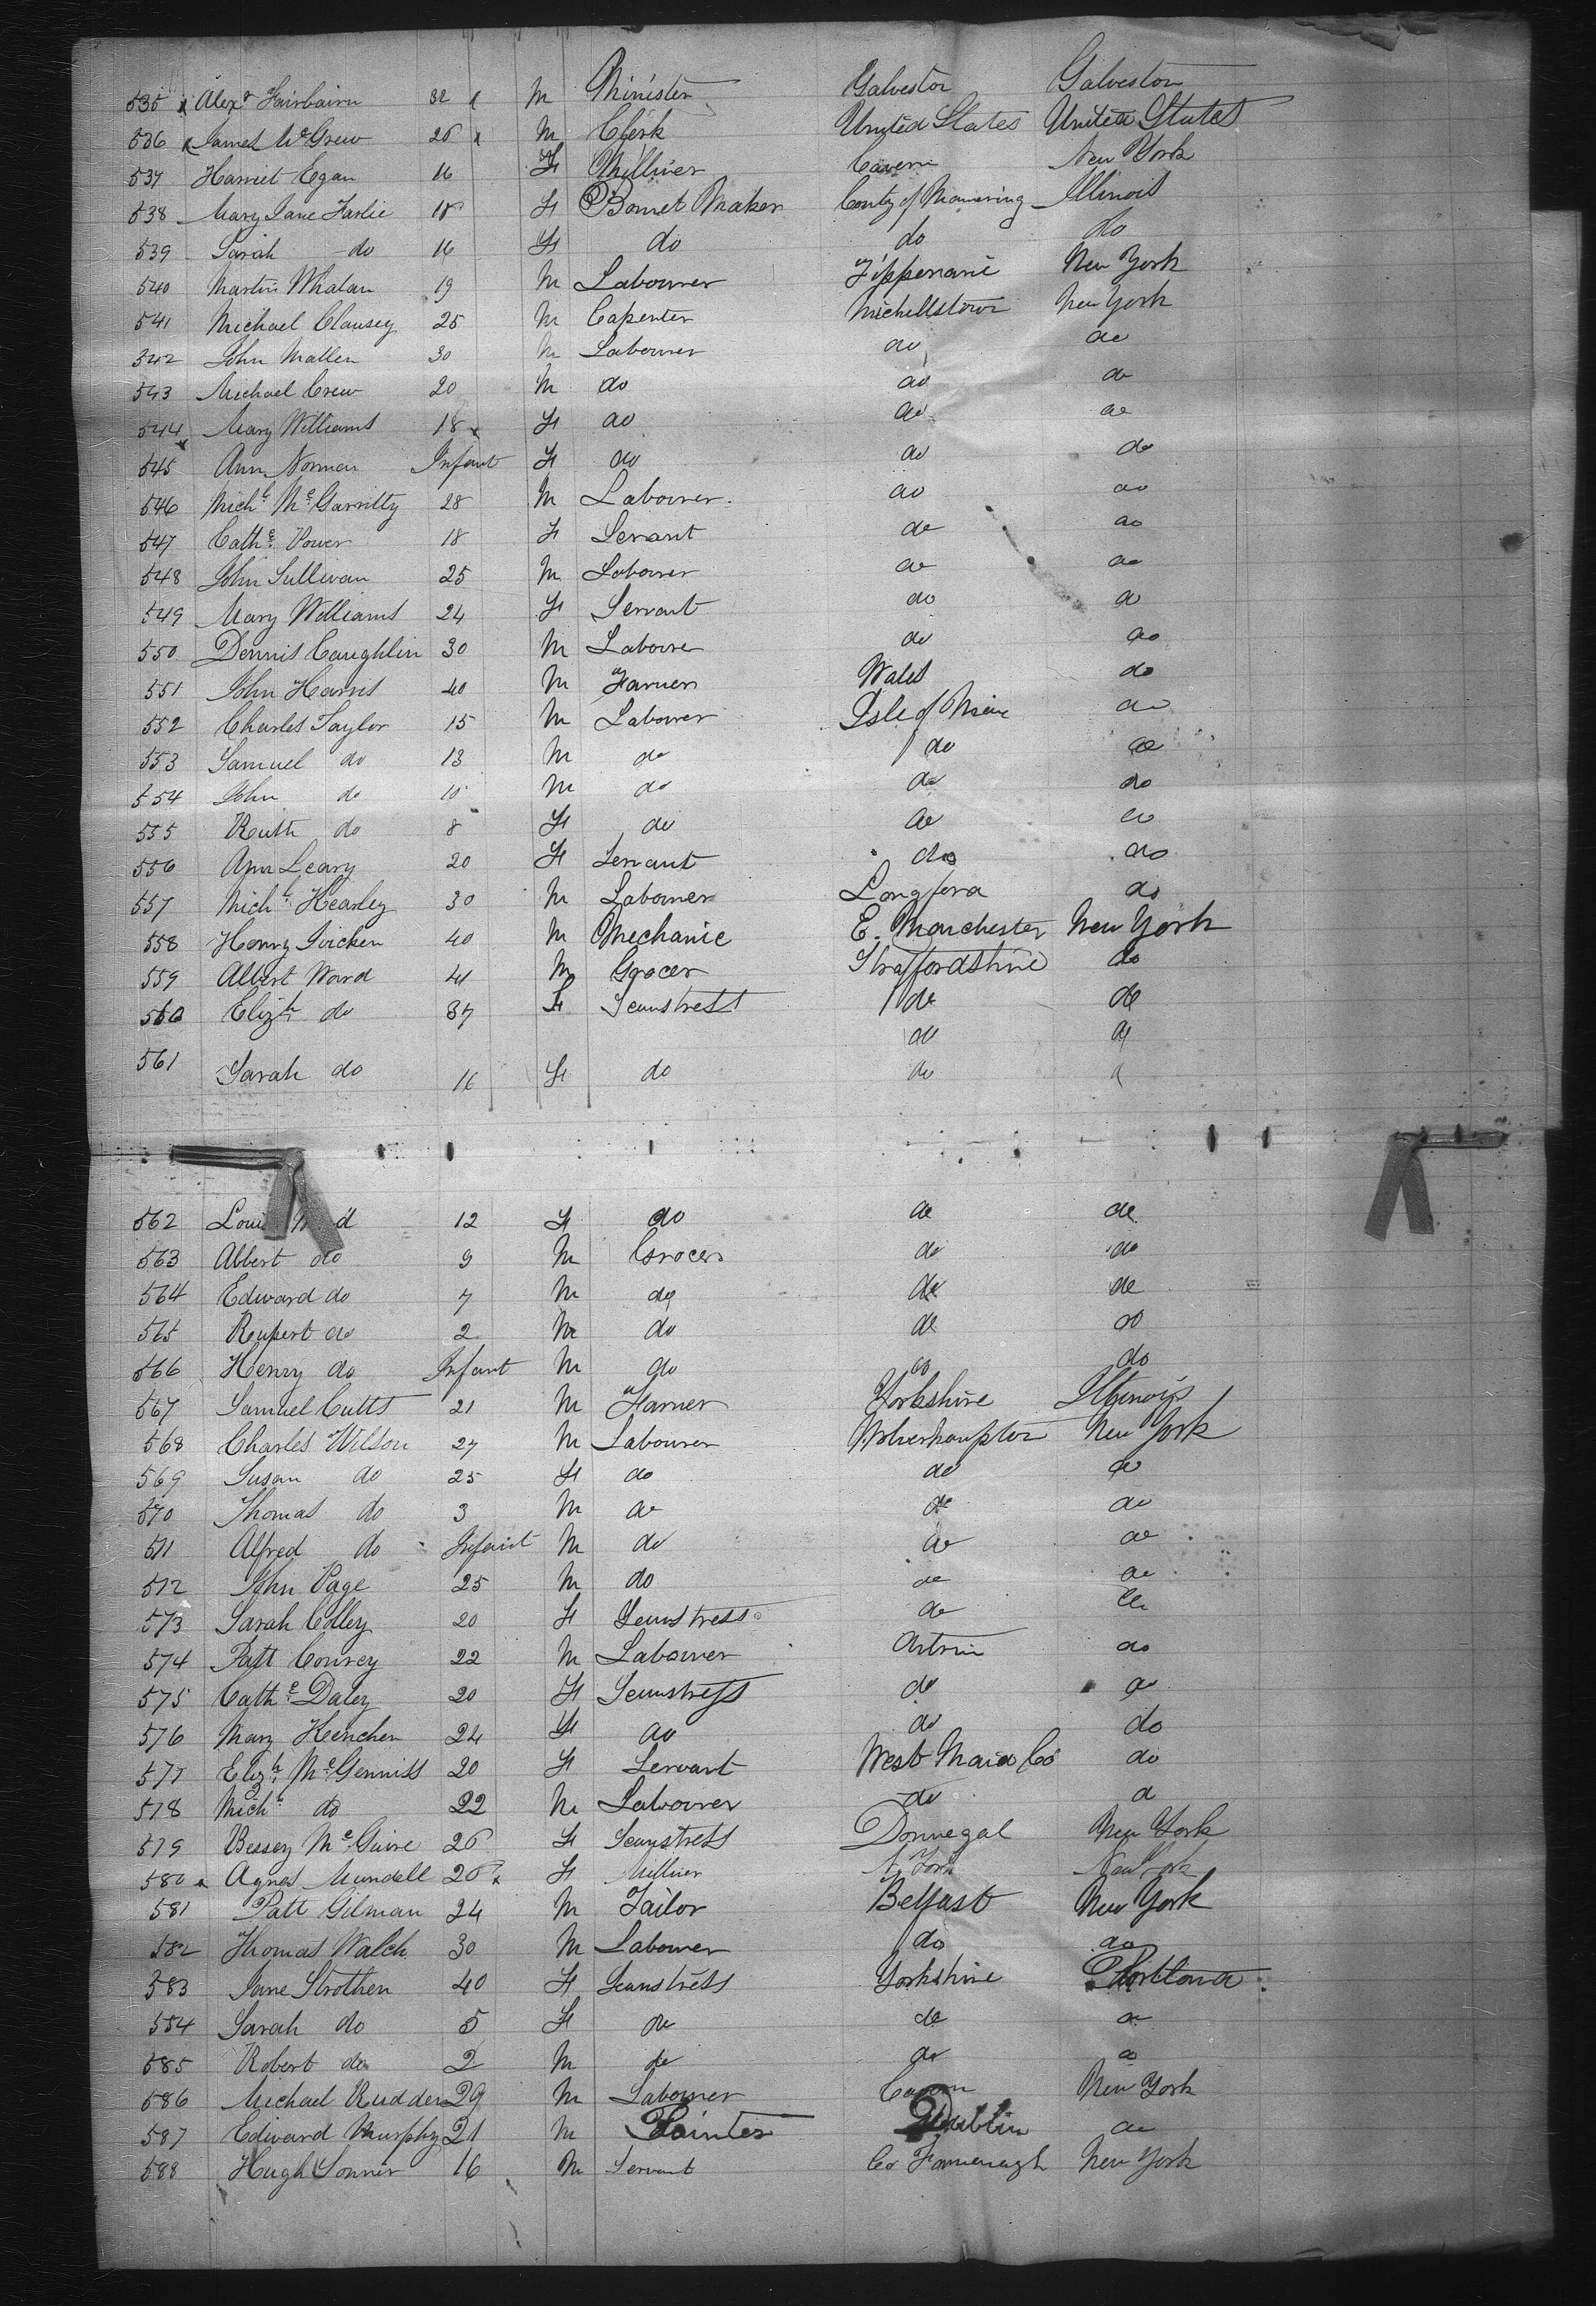 535 x Alexr Fairbairn 32 x M Minister Galveston Galveston
536 x James McGrew 26 x M Clerk United States United States
537 Harriet Egan 16 F Milliner Cavern New York
538 Mary Jane Farlie 18 F Bonnet Maker County of Illinois
539 Sarah do 16 F do do do
540 Martin Whalan 19 M Labourer Tipperarie New York
541 Michael Clausey 25 M Capenter Michellstown New York
542 John Mallen 30 M Labourer do do
543 Michael Crew 20 M do do do
544 x Mary Williams 18 x F do do do
545 Ann Norman Infant F do do do
546 Michl McGarritty 28 M Labourer do do
547 Cathe Power 18 F Servant do do
548 John Sullivan 25 M Labourer do do
549 Mary Williams 24 F Servant do do
550 Dennis Caughlin 30 M Labourer do do
551 John Harris 40 M Farmer Wales do
552 Charles Taylor 15 M Labourer Isle of Man do
553 Samuel do 13 M do do do
554 John do 10 M do do do
555 Ruth do 8 F do do do
556 Ann Leary 20 F Servant do do
557 Michl Kearley 30 M Labourer Longford do
558 Henry 40 M Mechanic E. Manchester New York
559 Albert Ward 41 M Grocer Straffordshire do
560 Elizh do 37 F Seamstress do do
do do
561 Sarah do 16 F do do
562 12 F do do do
563 Albert do 9 M Grocer do do
564 Edward do 7 M do do do
565 Rupert do 2 M do do do
566 Henry do Infant M do do do
567 Samuel Cutts 21 M Farmer Yorkshire Illinois
568 Charles Wilson 27 M Labourer Wolverhampton New York
569 Susan do 25 F do do do
570 Thomas do 3 M do do do
571 Alfred do Infant M do do do
572 John Page 25 M do do do
573 Sarah Colley 20 F Seamstress do do
574 Patt Conrey 22 M Labourer Antrim do
575 Cathe Daley 20 F Seamstress do do
576 Mary Heenchen 24 F do do do
577 Elizh McGenniss 20 F Servant West Maid Co do
578 Michl do 22 M Labourer do do
579 Bessey McGuire 26 F Seamstress Donnegal New York
580 x Agnes Mundell 26 x F Milliner N. York New York
581 Patt Gilman 24 M Tailor Belfast New York
582 Thomas Walch 30 M Labourer do do
583 Jane Strothen 40 F Seamstress Yorkshire Portland
584 Sarah do 5 F do do do
585 Robert do 2 M do do do
586 Michael Rudden 29 M Labourer Cavan New York
587 Edward Murphy 21 M Painter Dublin do
588 Hugh Connir 16 M Servant Co Farmenagh New York